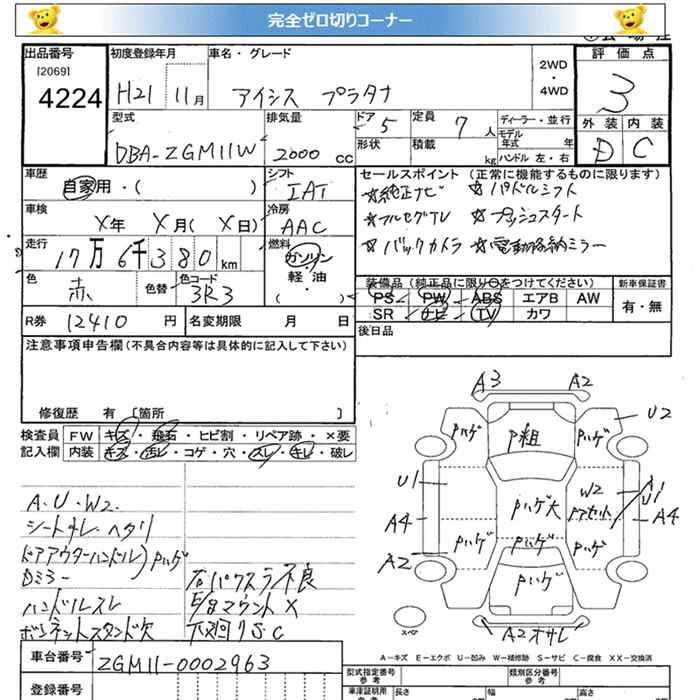 完全ゼロ切りコーナー
出品番号
[2069]
4224
初度登録年月
H21 11月
車名・グレード
アイシス プラタナ
2WD
・
4WD
評価点
3
外装 内装
D C
型式
DBA-ZGM11W
排気量
2000 CC
ドア
5
形状
定員
7人
積載
kg
ディーラー・並行
モデル
年式 年
ハンドル 左・右
車歴
自家用・( )
シフト
IAT
車検
X年 X月(X日)
冷房
AAC
走行
17万6千380km
燃料
ガソリン
軽・油
( )
色
赤
色替
色コード
3R3
R券 12410 円
名変期限 月 日
セールスポイント (正常に機能するものに限ります)
☆純正ナビ ☆パドルシフト
☆フルセグTV ☆プッシュスタート
☆バックカメラ ☆電動格納ミラー
装備品(純正品に限り○をつけてください)
PS PW ABS エアB AW
SR ナビ TV カワ
新車保証書
有・無
後日品
注意事項申告欄(不具合内容等は具体的に記入して下さい)
修復歴 有 [箇所 ]
検査員 FW キズ・飛石・ヒビ割・リペア跡・×要
記入欄 内装 キズ・汚レ・コゲ・穴・スレ・キレ・破レ
A.U.W2.
シートスレ ヘタリ
ドアアウターハンドル)Pハゲ
Dミラー
ハンドルスレ
ボンネットスタンド欠
右パワスラ不良
E/gマウント×
下廻りS C
A3 A2
U2
Pハゲ P粗 Pハゲ
U1
A4
A2
Pハゲ Pハゲ大 Pハゲ
W2
ドアセット
A1
U1
A4
Pハゲ
スペア
A2オサレ
A-キズ E-エクボ U-凹み W-補修跡 S-サビ C-腐食 XX-交換済
車台番号 ZGM11-0002963
登録番号
型式指定番号
参考
類別区分番号
参考
車庫証明用
参考
長さ 幅 高さ